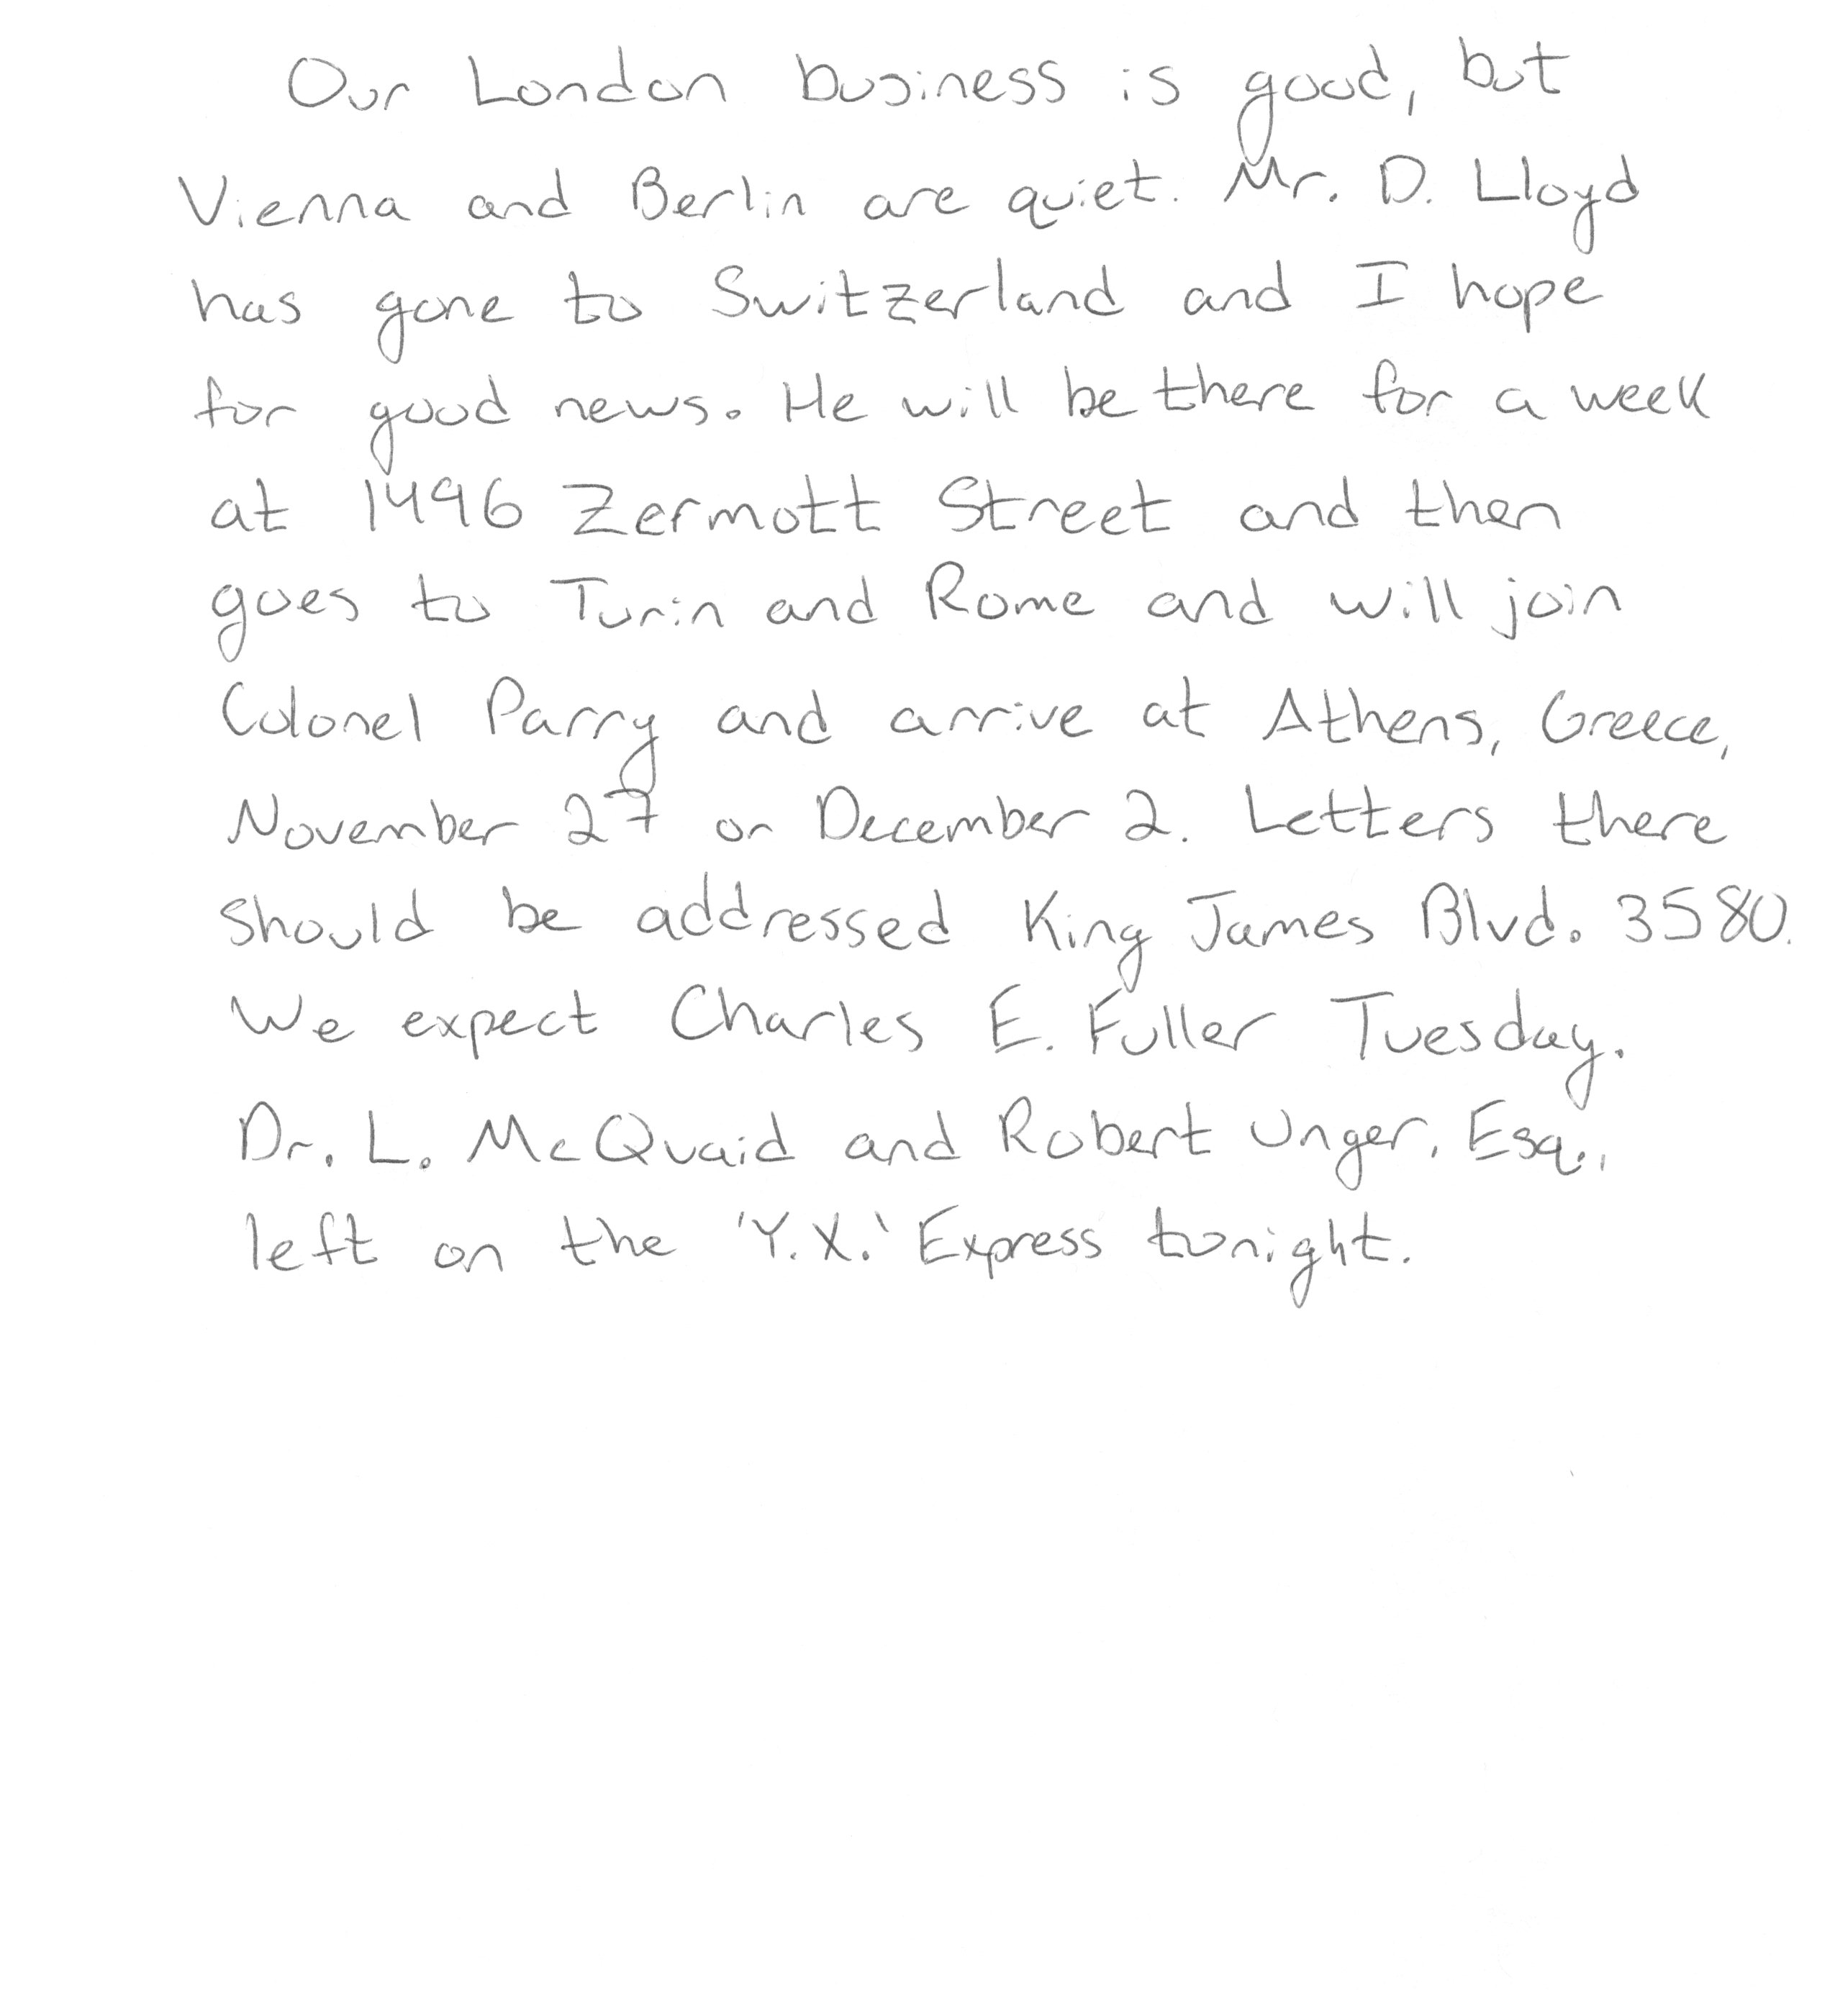 Our London business is good, but
Vienna and Berlin are quiet. Mr. D. Lloyd
has gone to Switzerland and I hope
for good news. He will be there for a week
at 1496 Zermott Street and then
goes to Turin and Rome and will join
Colonel Parry and arrive at Athens, Greece,
November 27 or December 2. Letters there
should be addressed King James Blvd. 3580.
We expect Charles E. Fuller Tuesday.
Dr. L. McQuaid and Robert Unger, Esq.,
left on the 'Y.X.' Express tonight.